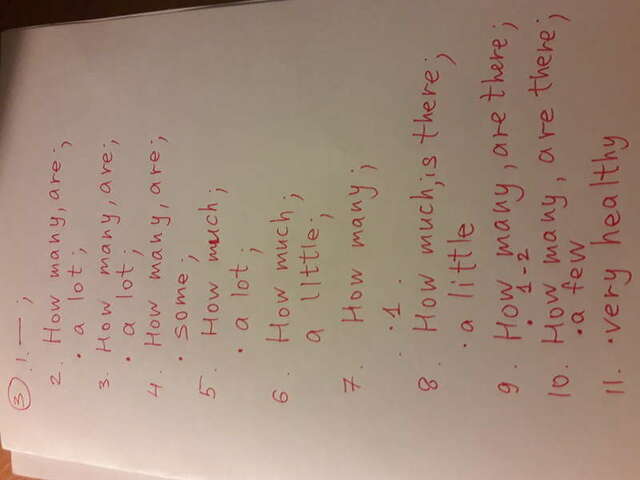 3 . 1. — ;
2. How many, are ;
• a lot ;
3. How many, are ;
• a lot ;
4. How many, are ;
• some ;
5. How much ;
• a lot ;
6. How much ;
a little ;
7. How many ;
• 1 .
8. How much, is there ;
• a little
9. How many, are there ;
• 1-2
10. How many, are there ;
• a few
11. • very healthy